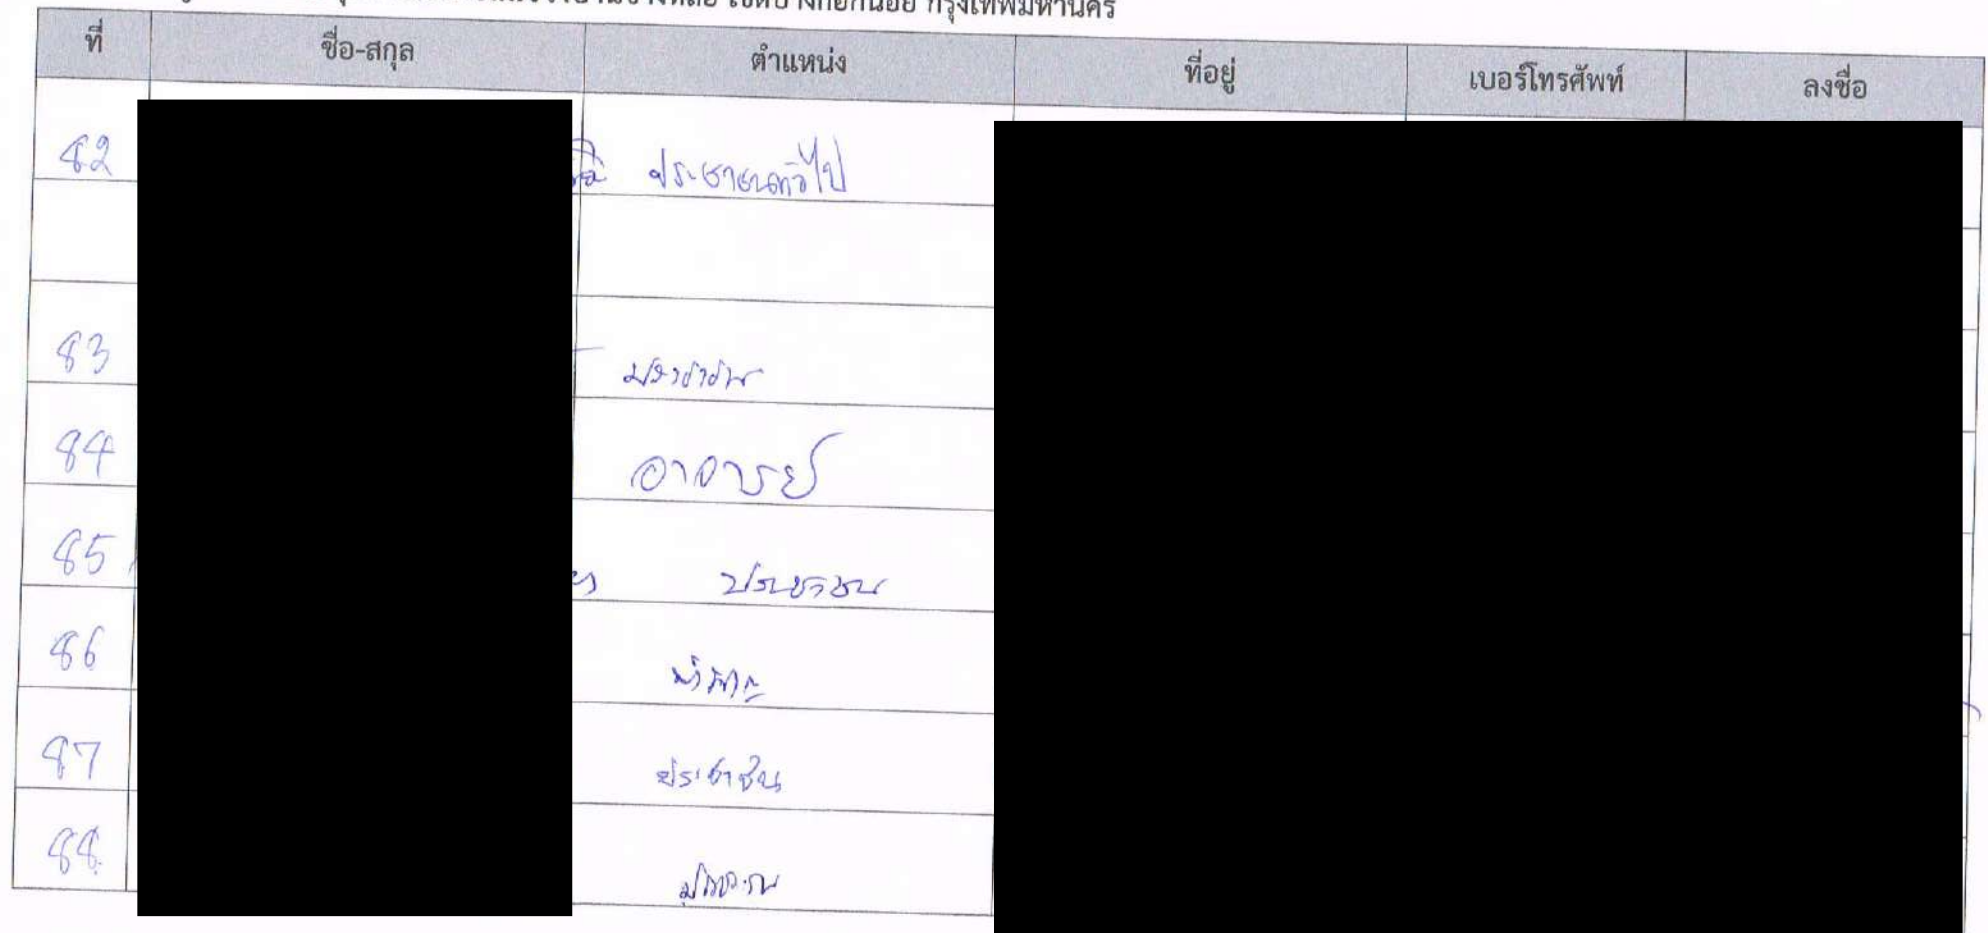 เขตบางกอกน้อย กรุงเทพมหานคร
ที่ ชื่อ-สกุล ตำแหน่ง ที่อยู่ เบอร์โทรศัพท์ ลงชื่อ
82 ประชาชนทั่วไป
83
84 อาจารย์
85 ประชาชน
86
87 ประชาชน
88